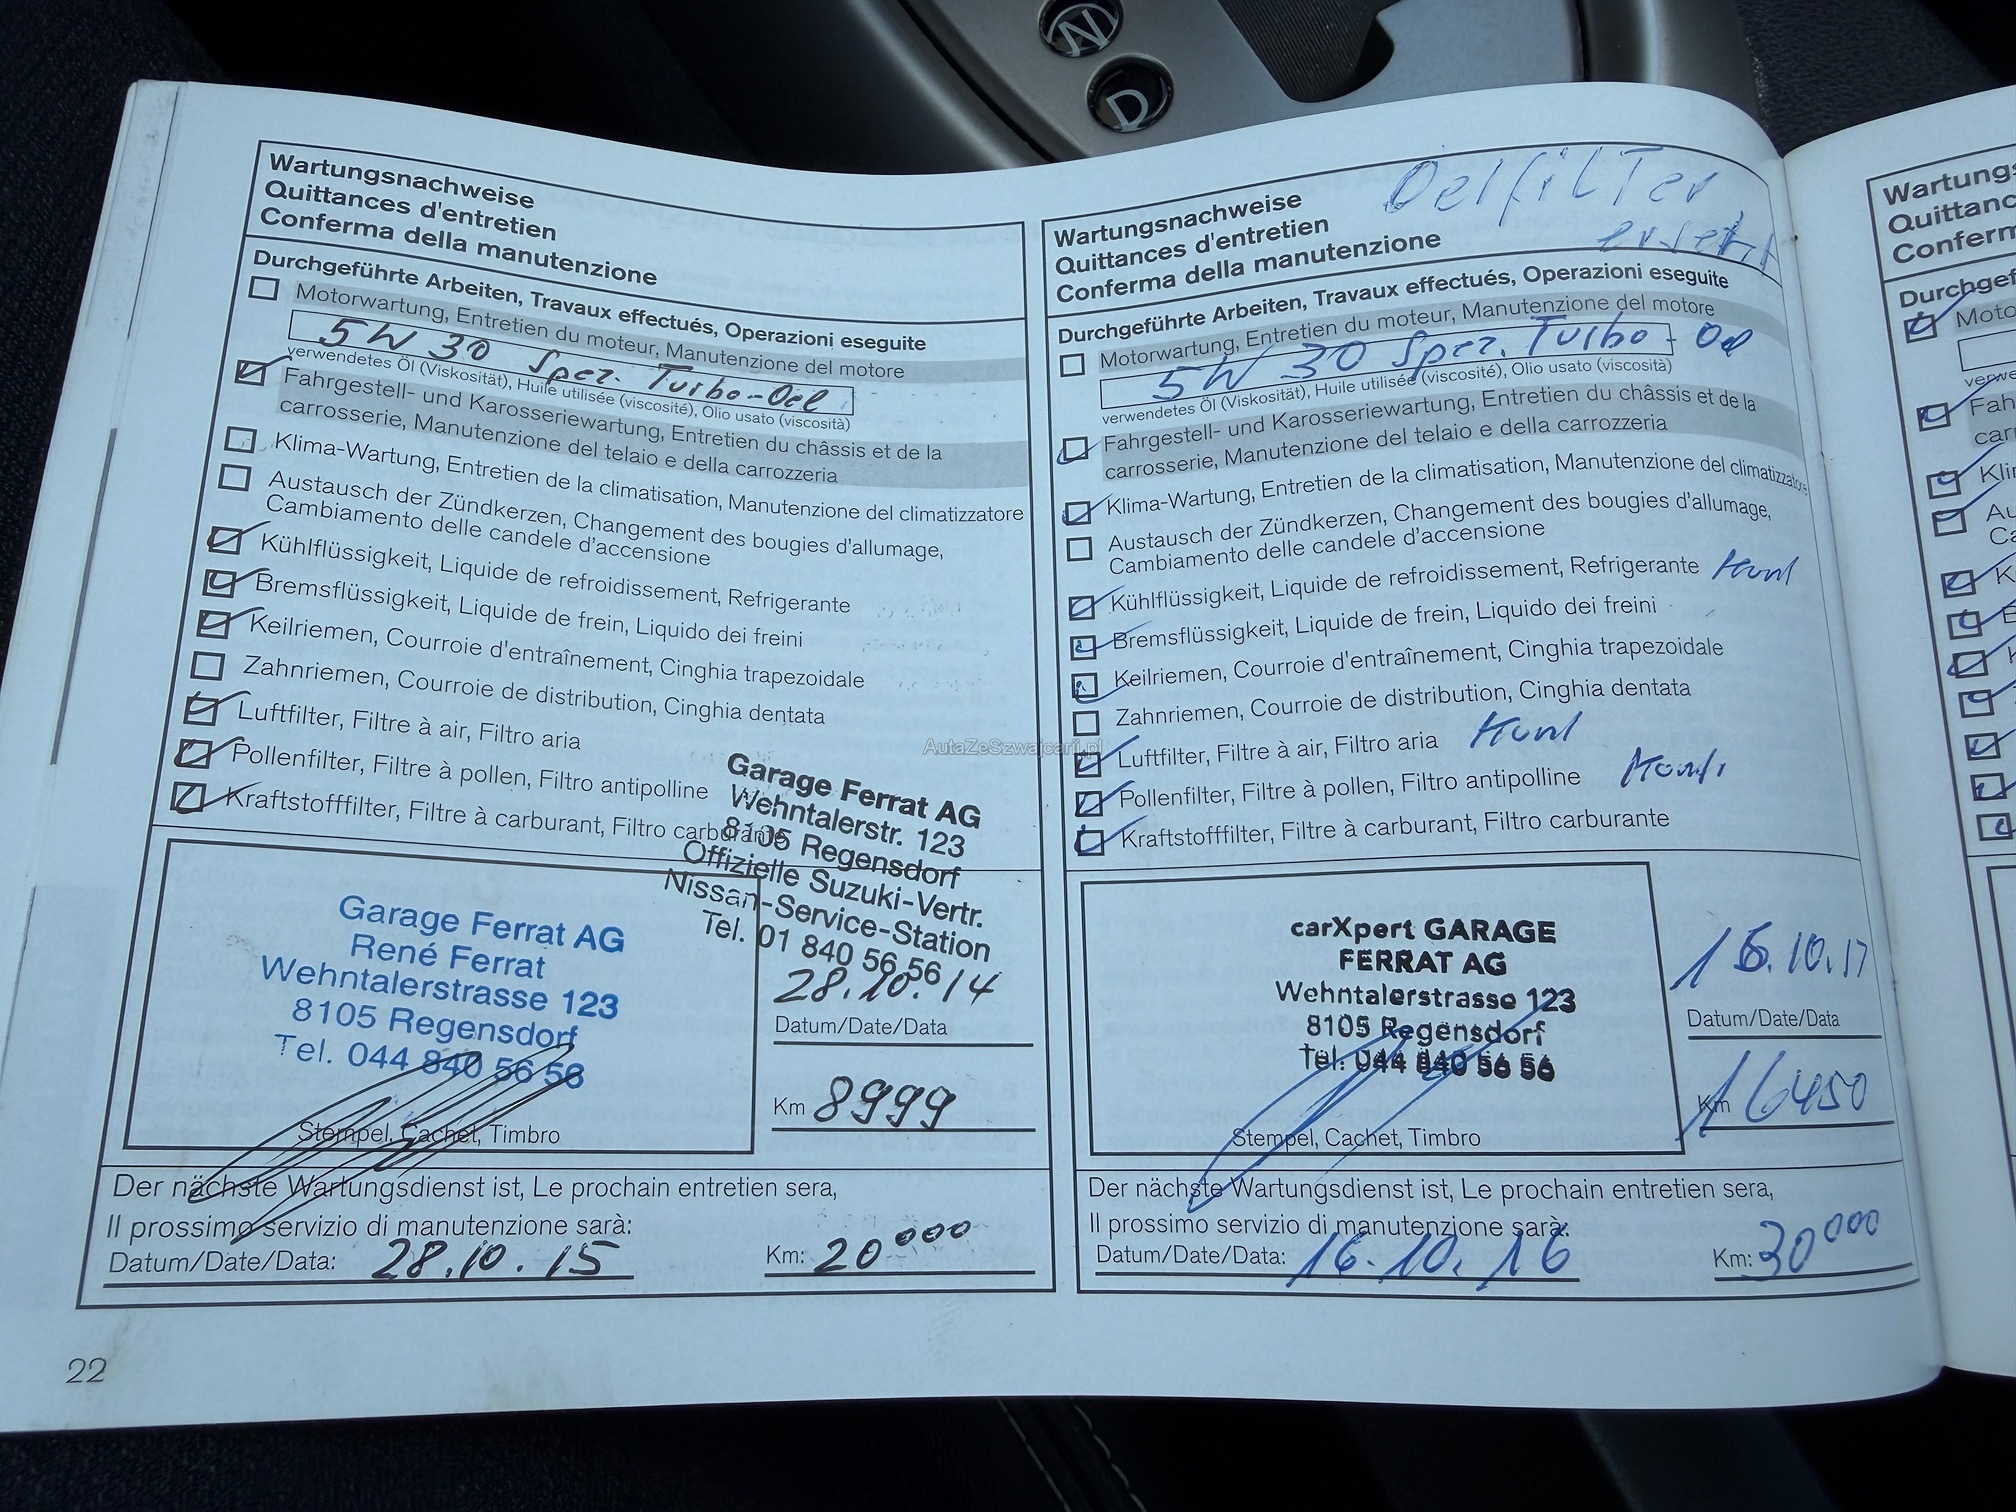 N
D
Wartungsnachweise
Quittances d'entretien
Conferma della manutenzione
Durchgeführte Arbeiten, Travaux effectués, Operazioni eseguite
Motorwartung, Entretien du moteur, Manutenzione del motore
5W 30 Spez. Turbo-Oel
verwendetes Öl (Viskosität), Huile utilisée (viscosité), Olio usato (viscosità)
Fahrgestell- und Karosseriewartung, Entretien du châssis et de la
carrosserie, Manutenzione del telaio e della carrozzeria
Klima-Wartung, Entretien de la climatisation, Manutenzione del climatizzatore
Austausch der Zündkerzen, Changement des bougies d'allumage,
Cambiamento delle candele d'accensione
Kühlflüssigkeit, Liquide de refroidissement, Refrigerante
Bremsflüssigkeit, Liquide de frein, Liquido dei freini
Keilriemen, Courroie d'entraînement, Cinghia trapezoidale
Zahnriemen, Courroie de distribution, Cinghia dentata
Luftfilter, Filtre à air, Filtro aria
Pollenfilter, Filtre à pollen, Filtro antipolline
Kraftstofffilter, Filtre à carburant, Filtro carburante
Garage Ferrat AG
Wehntalerstr. 123
8105 Regensdorf
Offizielle Suzuki-Vertr.
Nissan-Service-Station
Tel. 01 840 56 56
Garage Ferrat AG
René Ferrat
Wehntalerstrasse 123
8105 Regensdorf
Tel. 044 840 56 56
Stempel, Cachet, Timbro
28.10.14
Datum/Date/Data
Km 8999
Der nächste Wartungsdienst ist, Le prochain entretien sera,
Il prossimo servizio di manutenzione sarà:
Datum/Date/Data: 28.10.15 Km: 20000
22
Wartungsnachweise
Quittances d'entretien
Conferma della manutenzione
Oelfilter
ersetzt
Durchgeführte Arbeiten, Travaux effectués, Operazioni eseguite
Motorwartung, Entretien du moteur, Manutenzione del motore
5W 30 Spez. Turbo-Oel
verwendetes Öl (Viskosität), Huile utilisée (viscosité), Olio usato (viscosità)
Fahrgestell- und Karosseriewartung, Entretien du châssis et de la
carrosserie, Manutenzione del telaio e della carrozzeria
Klima-Wartung, Entretien de la climatisation, Manutenzione del climatizzatore
Austausch der Zündkerzen, Changement des bougies d'allumage,
Cambiamento delle candele d'accensione
Kühlflüssigkeit, Liquide de refroidissement, Refrigerante
Bremsflüssigkeit, Liquide de frein, Liquido dei freini
Keilriemen, Courroie d'entraînement, Cinghia trapezoidale
Zahnriemen, Courroie de distribution, Cinghia dentata
Luftfilter, Filtre à air, Filtro aria
Pollenfilter, Filtre à pollen, Filtro antipolline
Kraftstofffilter, Filtre à carburant, Filtro carburante
carXpert GARAGE
FERRAT AG
Wehntalerstrasse 123
8105 Regensdorf
Tel. 044 840 56 56
Stempel, Cachet, Timbro
Datum/Date/Data
Km 16450
Der nächste Wartungsdienst ist, Le prochain entretien sera,
Il prossimo servizio di manutenzione sarà:
Datum/Date/Data: 16.10.16 Km: 30000
AutaZeSzwajcarii.pl